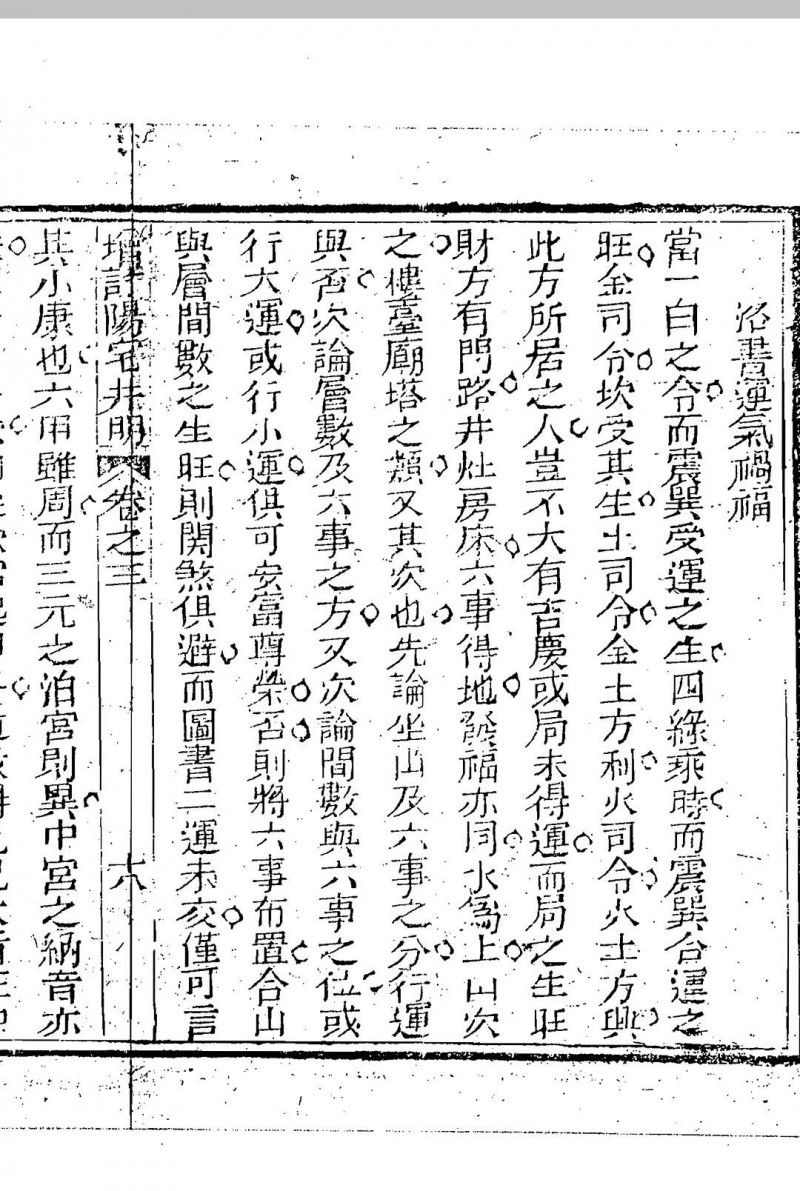 洛書運氣禍福
當一白之令而震巽受運之生四綠乘時而震巽合運之
旺金司令坎受其生土司令金土方利火司令火土方興
此方所居之人豈不大有吉慶或局未得運而局之生旺
財方有門路井灶房床六事得地發福亦同水為上山次
之樓臺廟塔之類又其次也先論坐山及六事之分行運
與否次論層數及六事之方又次論間數與六事之位或
行大運或行小運俱可安富尊榮否則將六事布置合山
與層間數之生旺則關煞俱避而圖書二運未交僅可言
增訂陽宅井明 卷之三 十八
其小康也六甲雖周而三元之泊宮則異中宮之納音亦